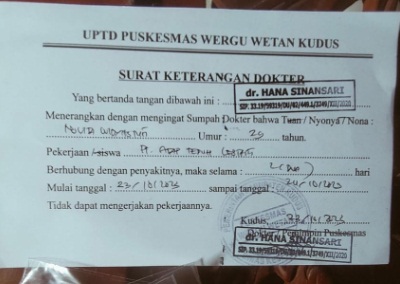 UPTD PUSKESMAS WERGU WETAN KUDUS
SURAT KETERANGAN DOKTER
Yang bertanda tangan dibawah ini : dr. HANA SINANSARI
Menerangkan dengan mengingat Sumpah Dokter bahwa Tuan / Nyonya / Nona :
Umur : 29 tahun.
Pekerjaan / siswa PT.
Berhubung dengan penyakitnya, maka selama : 2 (Dua) hari
Mulai tanggal : 23/10/2023 sampai tanggal : 24/10/2023
Tidak dapat mengerjakan pekerjaannya.
Kudus, 23/10/2023
Dokter / Pemimpin Puskesmas
dr. HANA SINANSARI